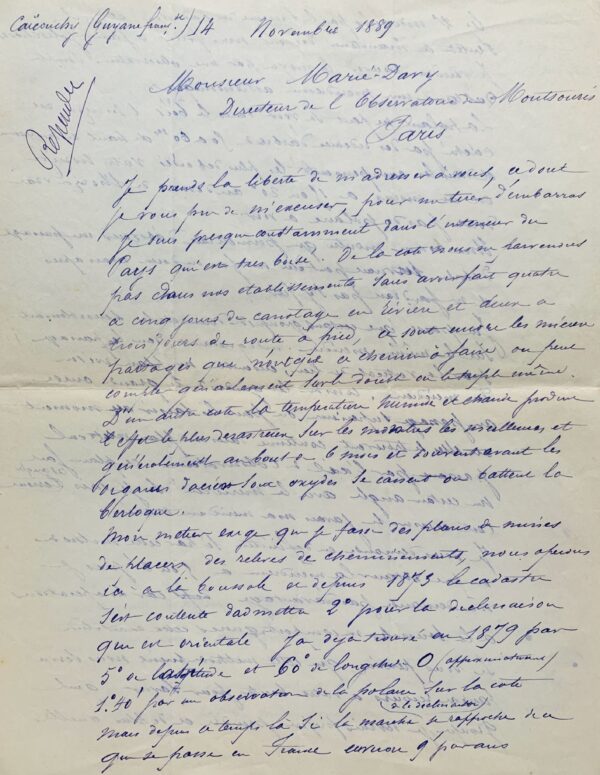 (Guyane franç.se) 14 Novembre 1889
Répondu
Monsieur Marié-Davy
Directeur de l'Observatoire de Montsouris
Paris
Je prends la liberté de m'adresser à vous, ce dont
je vous prie de m'excuser, pour me tirer d'embarras
Je suis presque constamment dans l'interieur du
Pays qui est très boisé. De la cote nous ne parvenons
pas dans nos etablissements sans avoir fait quatre
a cinq jours de canotage en rivière et deux a
trois jours de route a pied, ce sont encore les mieux
partagés que n'ont que ce chemin à faire, on peut
compter généralement sur le double ou le triple même.
D'un autre coté la temperature humide et chaude produit
l'effet le plus desastreux sur les montres les meilleures et
généralement au bout de 6 mois et souvent avant les
organes d'acier sont oxydés se cassent ou battent la
berloque.
Mon metier exige que je fasse des plans de mines
de placers, des relevés de cheminements, nous operons
ici a la boussole et depuis 1873 le cadastre
s'est contenté d'admettre 2° pour la declinaison
qui est orientale J'ai deja trouvé en 1879 par
5° de latitude et 60° de longitude O (approximations)
1°.40' par une observation de la polaire sur la cote
mais depuis ce temps là si la marche de la declinaison se rapproche de ce
qui se passe en France environ 9' par ans